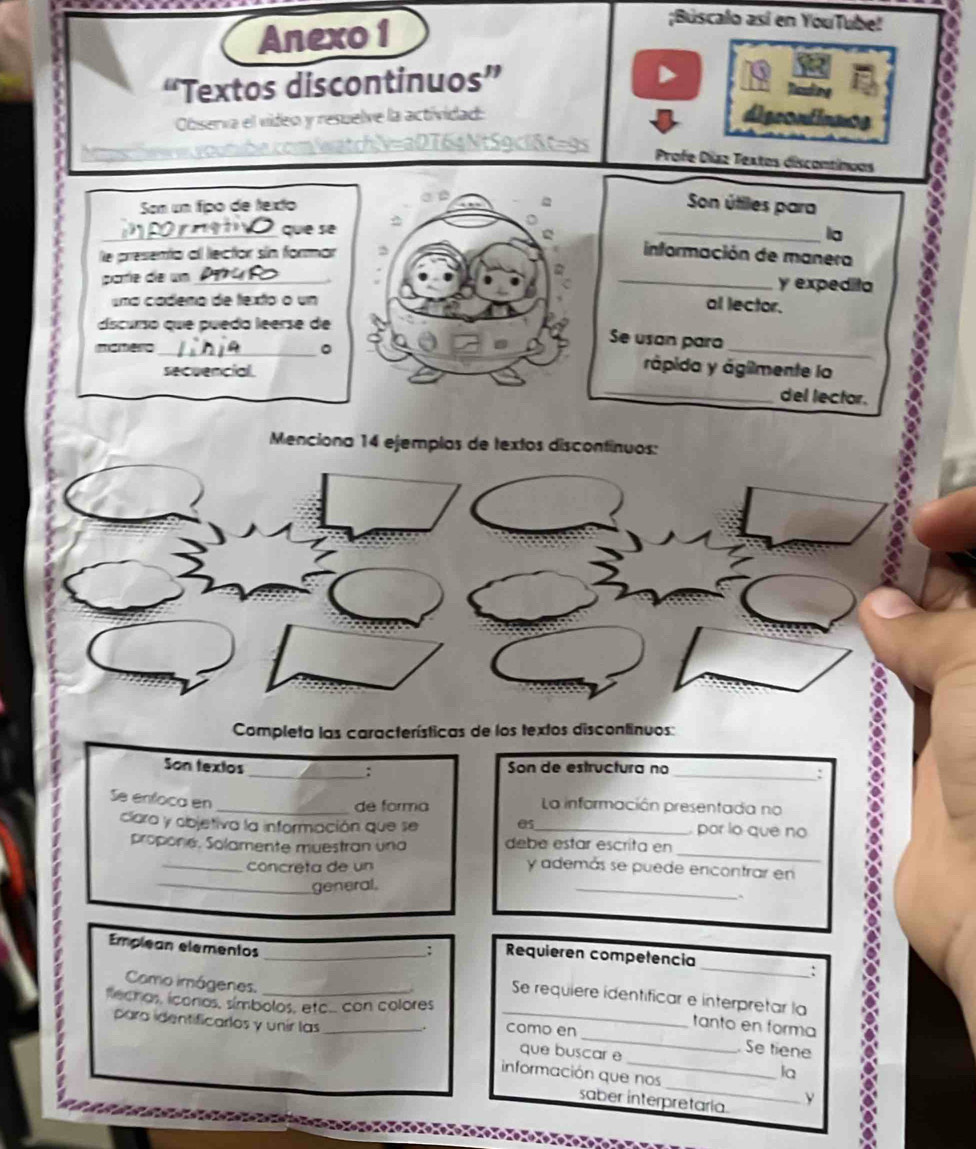 Anexo 1
"Textos discontinuos"
Observa el video y resuelve la actividad:
¡Búscalo así en YouTube!
discontinuos
Profe Díaz Textos discontinuos
Son un tipo de texto
que se
le presenta al lector sin formar
parte de un
una cadena de texto o un
discurso que pueda leerse de
manera linia o
secuencial.
Son útiles para
la
información de manera
y expedita
al lector.
Se usan para
rápida y ágilmente la
del lector.
Menciona 14 ejemplos de textos discontinuos:
Completa las características de los textos discontinuos:
Son textos :
Se enfoca en de forma
clara y objetiva la información que se
propone. Solamente muestran una
concreta de un
general.
Son de estructura no :
La información presentada no
es , por lo que no
debe estar escrita en
y además se puede encontrar en
.
Emplean elementos :
Como imágenes, ,
flechas, íconos, símbolos, etc... con colores
para identificarlos y unir las .
Requieren competencia :
Se requiere identificar e interpretar la
tanto en forma
como en . Se tiene
que buscar e la
información que nos y
saber interpretarla.